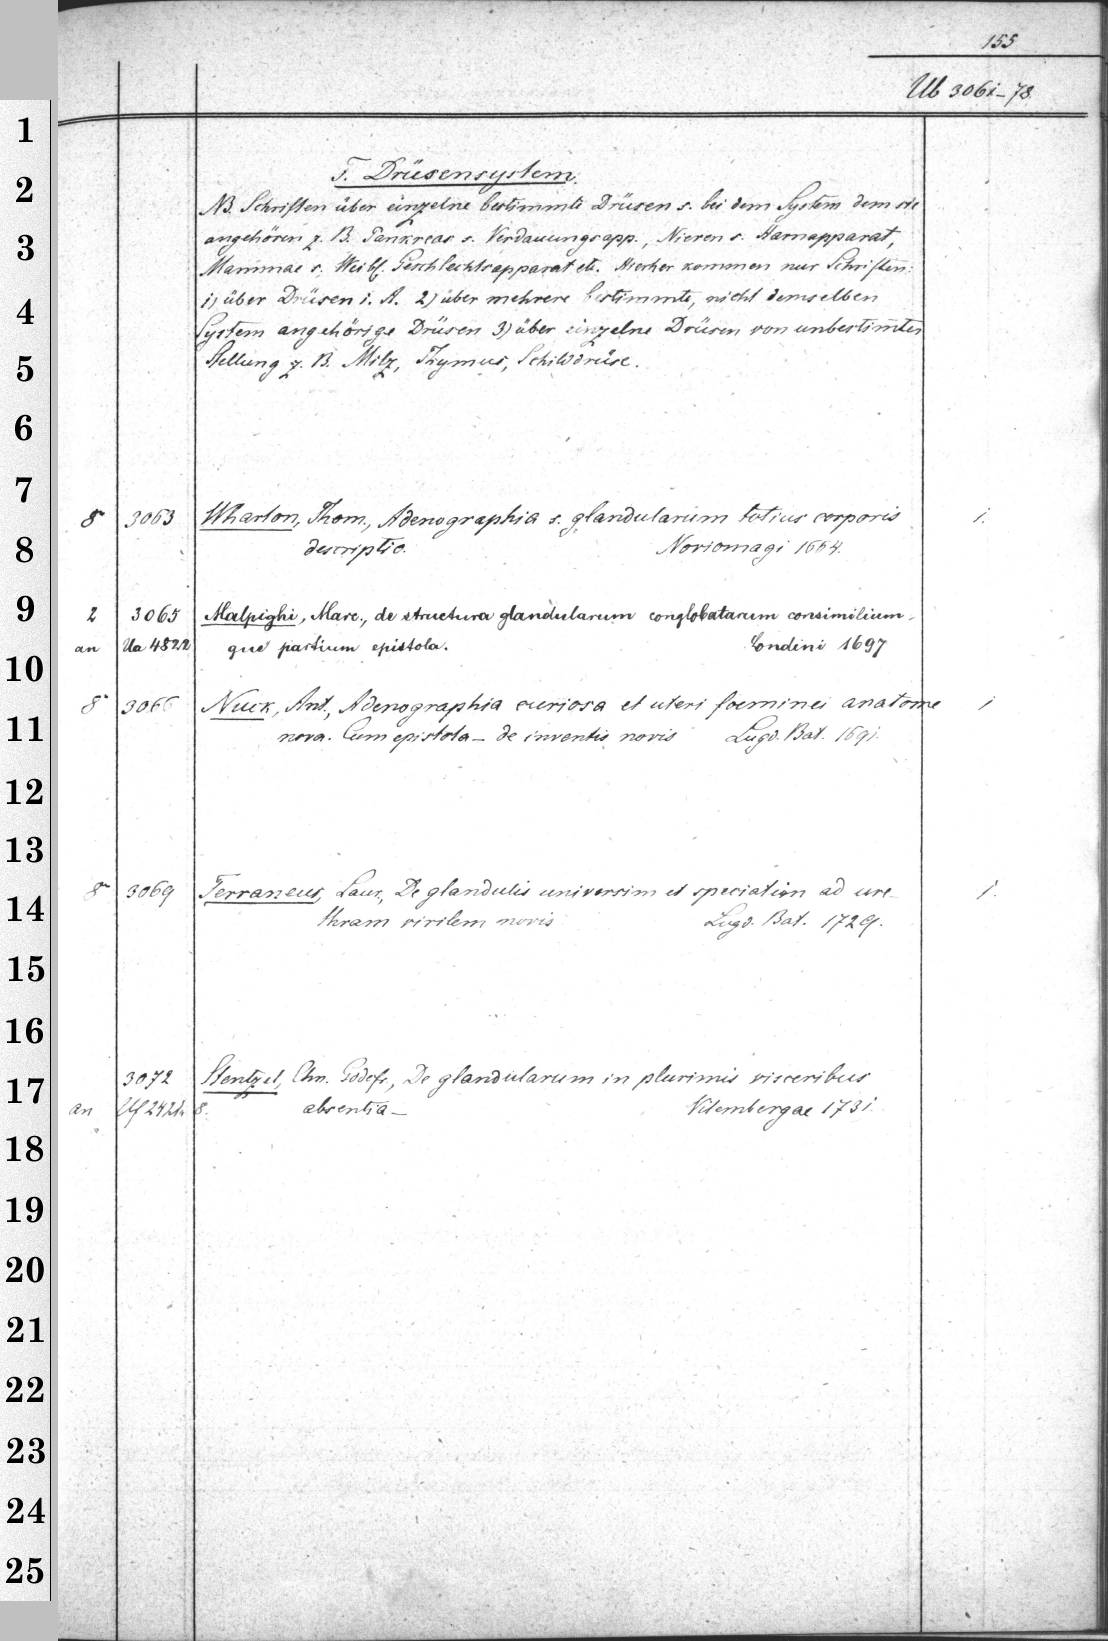 155
Ub 3061-78
F. Drüsensystem.
NB. Schriften über einzelne bestimmte Drüsen s. bei dem System dem sie
angehören z. B. Pankreas s. Verdauungsapp., Nieren s. Harnapparat,
Mammae s. Weibl. Geschlechtsapparat etc. Hierher kommen nur Schriften:
1) über Drüsen i. A. 2) über mehrere bestimmte, nicht demselben
System angehörige Drüsen 3) über einzelne Drüsen von unbestimter
Stellung z. B. Milz, Thymus, Schilddrüse.
8° 3063 Wharton, Thom., Adenographia s. glandularum totius corporis 1.
descriptio. Noviomagi 1664.
2 3065 Malpighi, Marc., de structura glandularum conglobatarum consimilium-
an Ua 4822 que partium epistola. Londini 1697
8° 3066 Nuck, Ant., Adenographia curiosa et uteri foeminei anatome 1
nova. Cum epistola - de inventis novis Lugd. Bat. 1691.
8° 3069 Terraneus, Laur., De glandulis universim et speciatim ad ure- 1.
thram virilem novis Lugd. Bat. 1729.
3072 Stentzel, Chn. Godofr., De glandularum in plurimis visceribus
an Uf 2421, 8. absentia - Vitembergae 1731
1
2
3
4
5
6
7
8
9
10
11
12
13
14
15
16
17
18
19
20
21
22
23
24
25